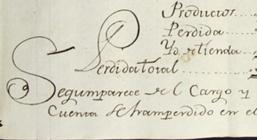 Producios....
Perdida....
Yd. de tienda....
Perdida total..........
Segum parece del Cargo y
Cuenta se han perdido en el